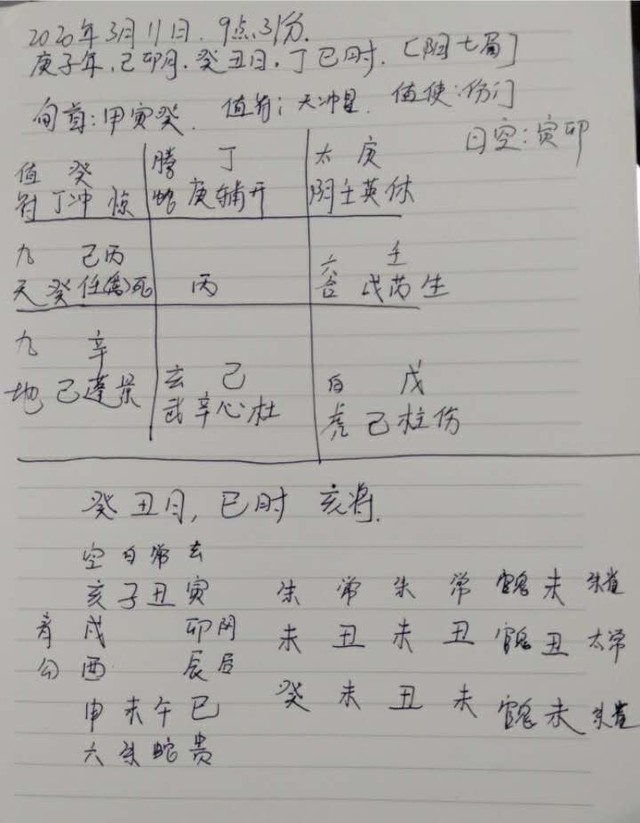 2020年3月11日. 9点31分.
庚子年.己卯月.癸丑日.丁巳时. [阳七局]
旬首:甲寅癸. 值符:天冲星. 值使:伤门
日空:寅卯
值 癸 螣 丁 太 庚
符 丁冲 惊 蛇 庚辅开 阴壬英休
九 己丙 六 壬
天 癸任(禽)死 丙 合 戊芮生
九 辛 玄 己 白 戊
地 己蓬景 武 辛心杜 虎 己柱伤
癸丑日, 巳时 亥将.
空白常玄
亥子丑寅 朱 常 朱 常 官鬼 未 朱雀
青 戌 卯阴 未 丑 未 丑 官鬼 丑 太常
勾 酉 辰后
申未午巳 癸 未 丑 未 官鬼 未 朱雀
六朱蛇贵